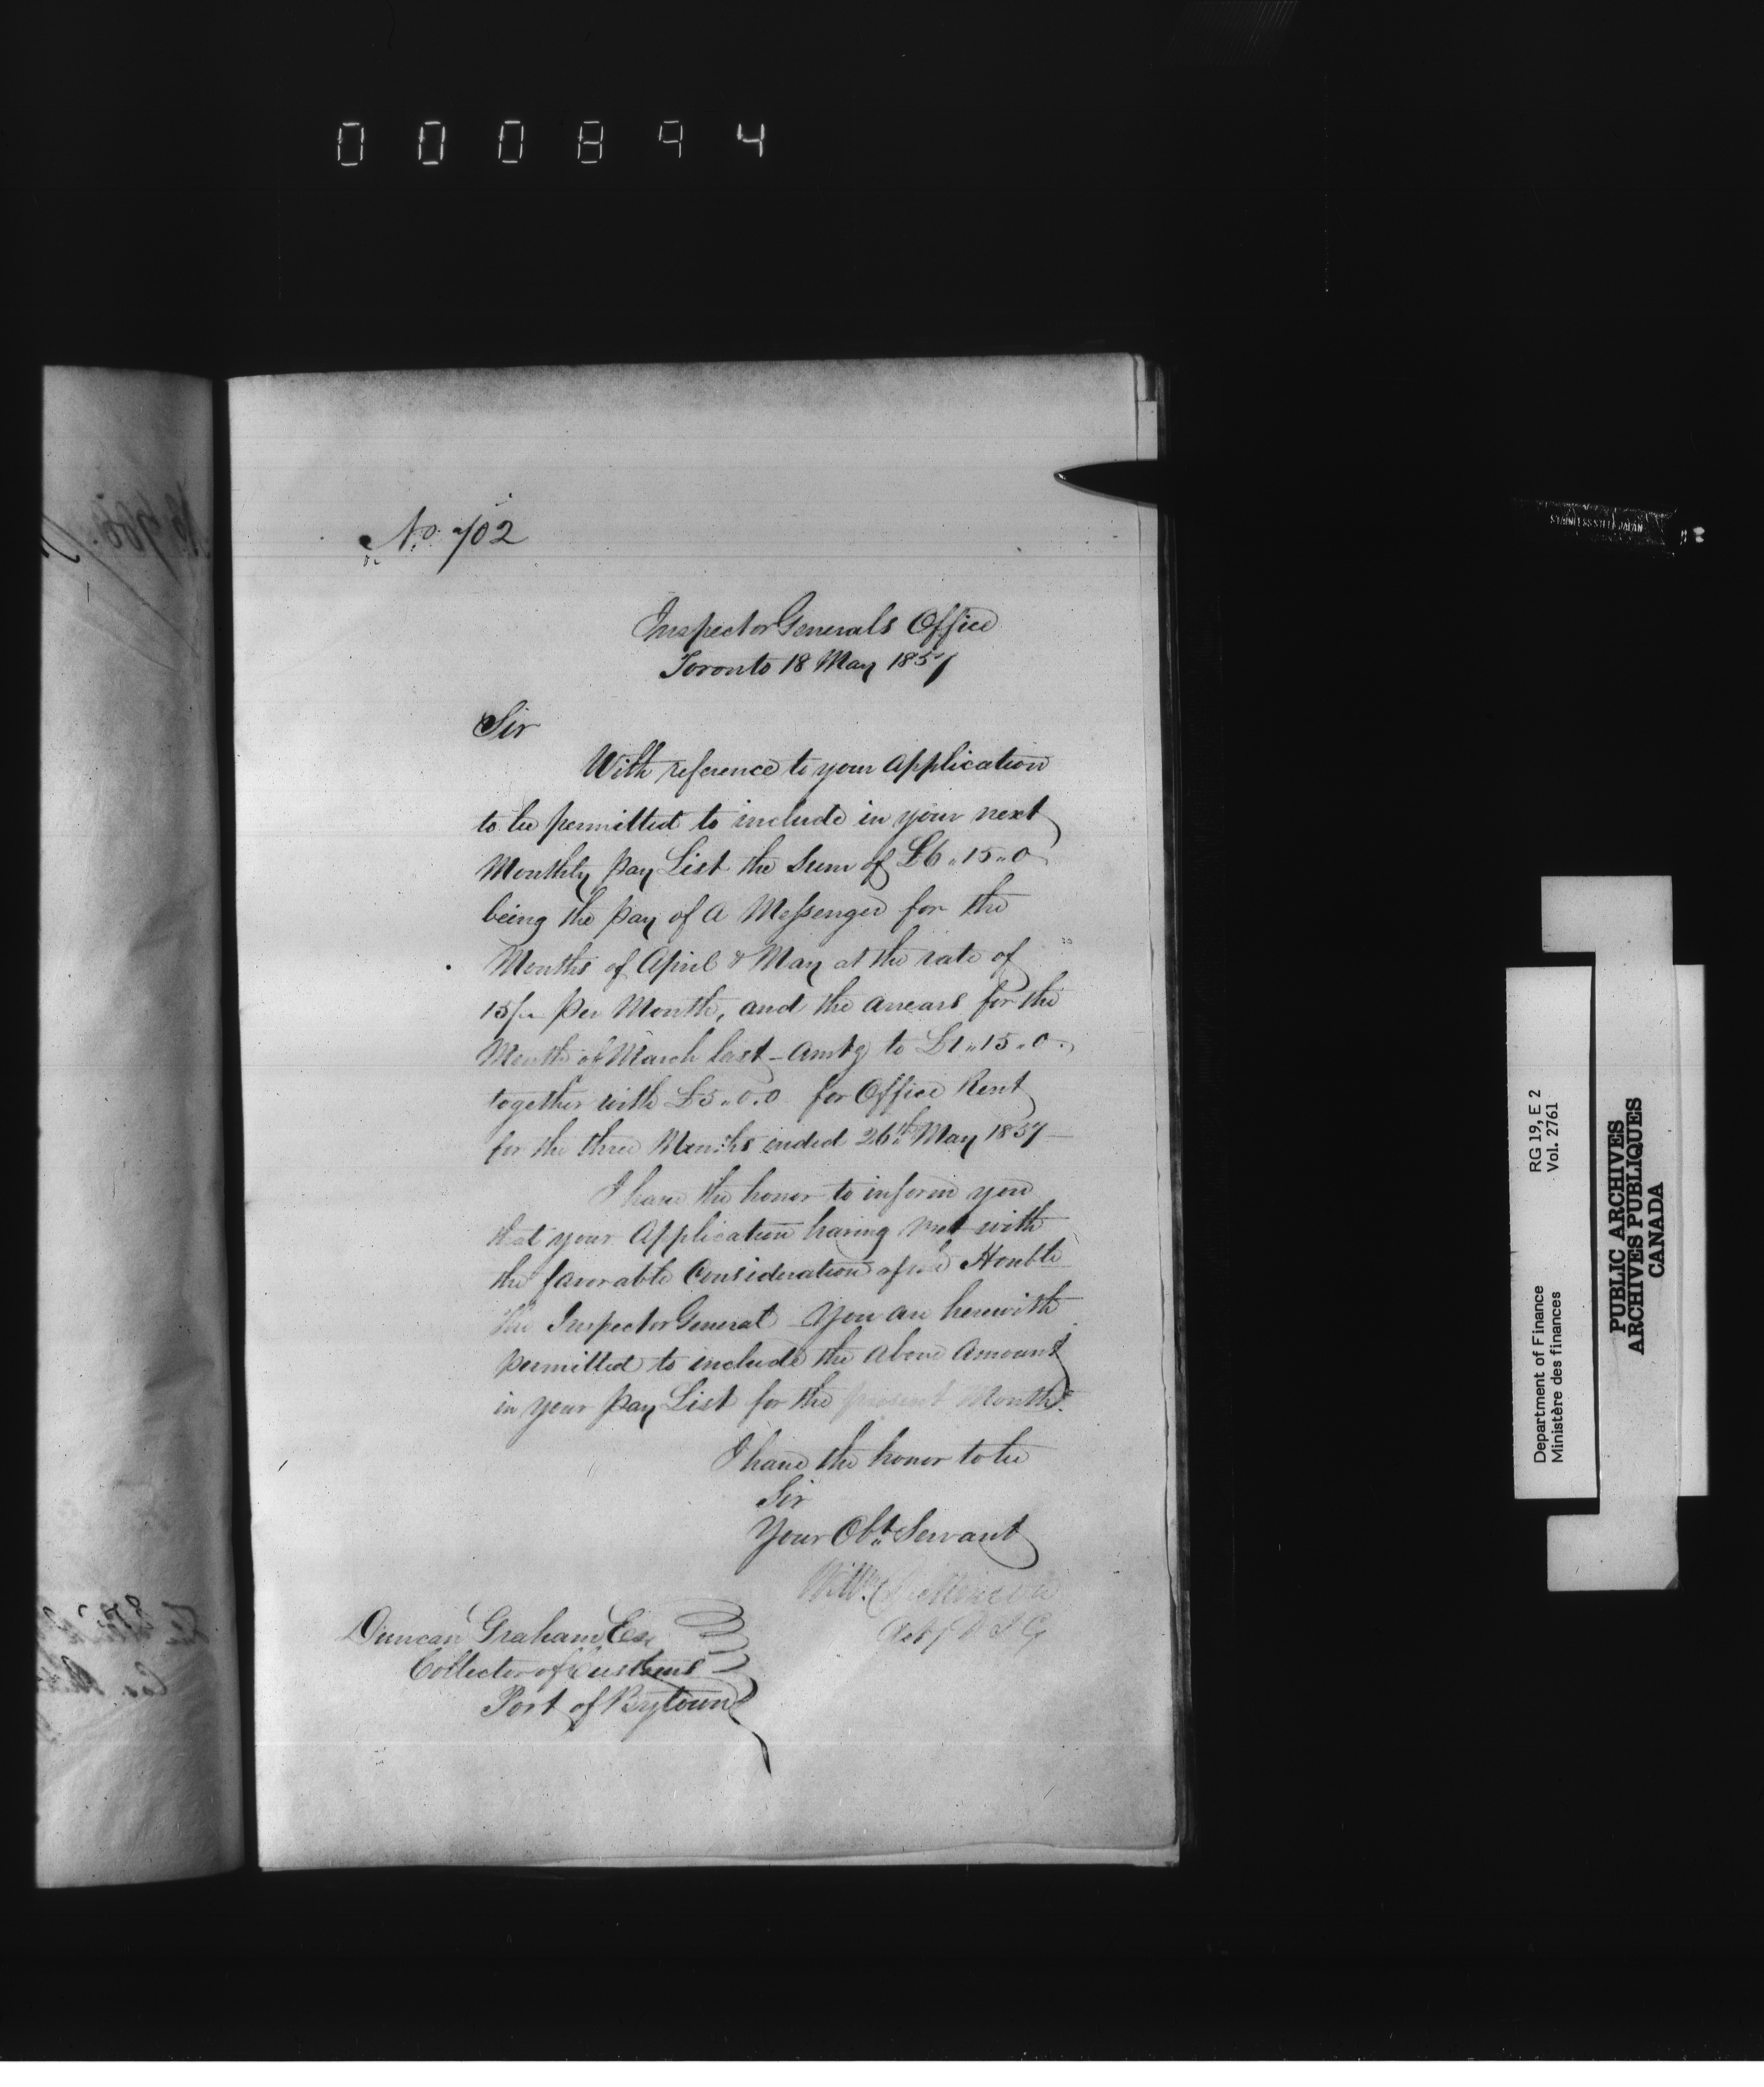 000894
No. 702
Inspector Generals Office
Toronto 18 May 1857
Sir
With reference to your Application
to be permitted to include in your next
Monthly Pay List the Sum of £6.15.0
being the Pay of a Messenger for the
Months of April & May at the rate of
15/- Per Month, and the arrears for the
Month of March last - Amtg to £1.15.0.
together with £5.0.0 for Office Rent
for the three Months ended 26th May 1857 -
I have the honor to inform you
that your Application having met with
the favorable Consideration of the Honble
the Inspector General You are herewith
permitted to include the above Amount
in your Pay List for the present Month.
I have the honor to be
Sir
Your Obt. Servant
Wm. Dickinson
Actg D I G
Duncan Graham Esq
Collector of Customs
Port of Bytown
STAINLESS STEEL JAPAN
Department of Finance RG 19, E 2
Ministère des finances Vol. 2761
PUBLIC ARCHIVES
ARCHIVES PUBLIQUES
CANADA